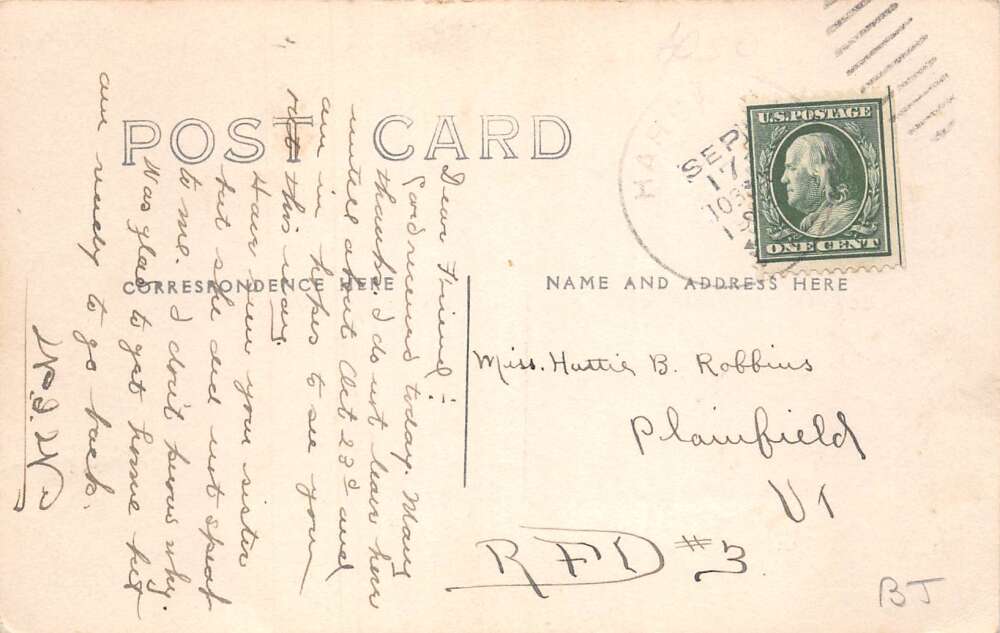 POST CARD
CORRESPONDENCE HERE
NAME AND ADDRESS HERE
Dear Friend:-
Card received today. Many
thanks. I do not leave here
until about Oct 23d and
am in hopes to see you
this way.
Have seen your sister
but she did not speak
to me. I don't know why.
Was glad to get home but
am ready to go back.
Miss. Hattie B. Robbins
Plainfield
Vt
RFD #3
BJ
HAR
SEP
17
1030
U.S. POSTAGE
ONE CENT